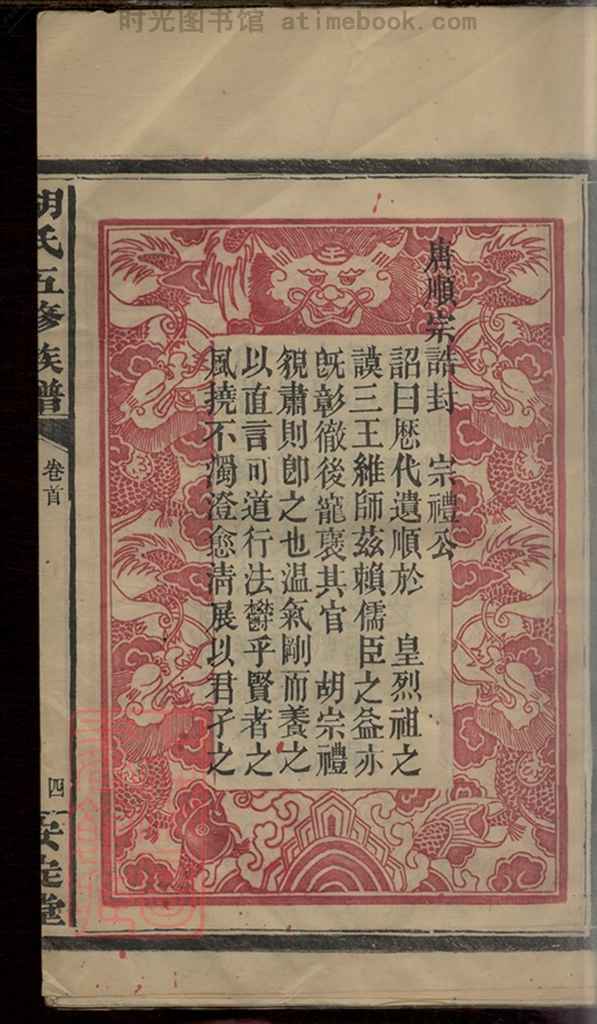 时光图书馆 atimebook.com
唐順宗誥封 宗禮公
詔曰歷代遺順於 皇烈祖之
謨三王維師茲賴儒臣之益亦
旣彰徹後寵襃其官 胡宗禮
貌肅則卽之也温氣剛而養之
以直言可道行法欝乎賢者之
風撓不濁澄愈淸展以君子之
胡氏五修族譜
卷首
四
安定堂